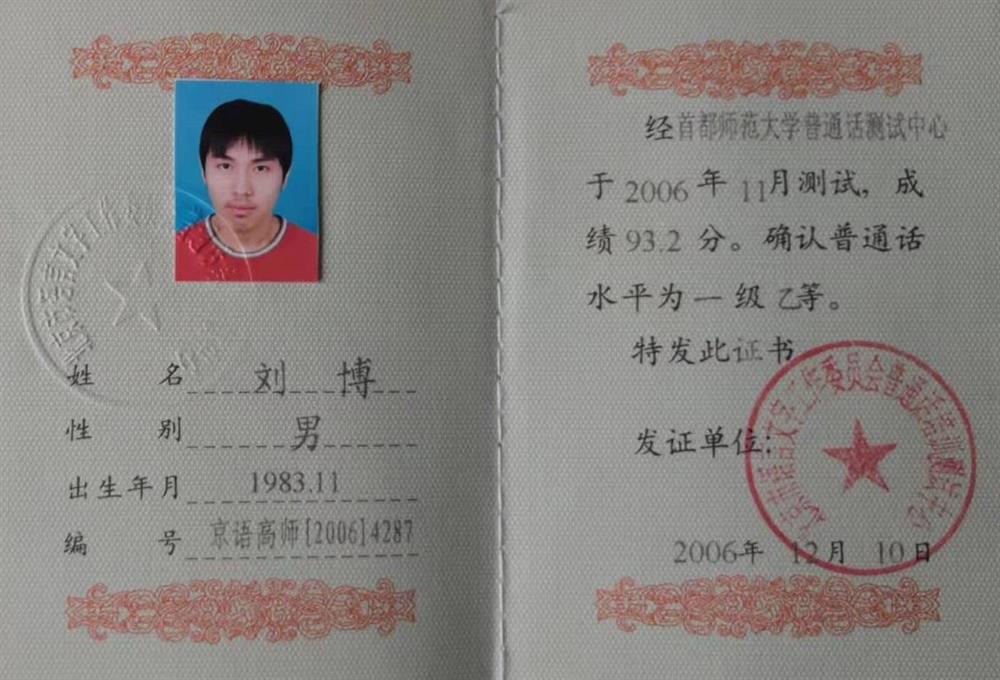 姓名 刘博
性别 男
出生年月 1983.11
编号 京语高师[2006]4287
经首都师范大学普通话测试中心
于 2006 年 11月测试，成
绩 93.2 分。确认普通话
水平为一级乙等。
特发此证书
发证单位：
北京市语言文字工作委员会普通话培训测试中心
2006年 12月 10日